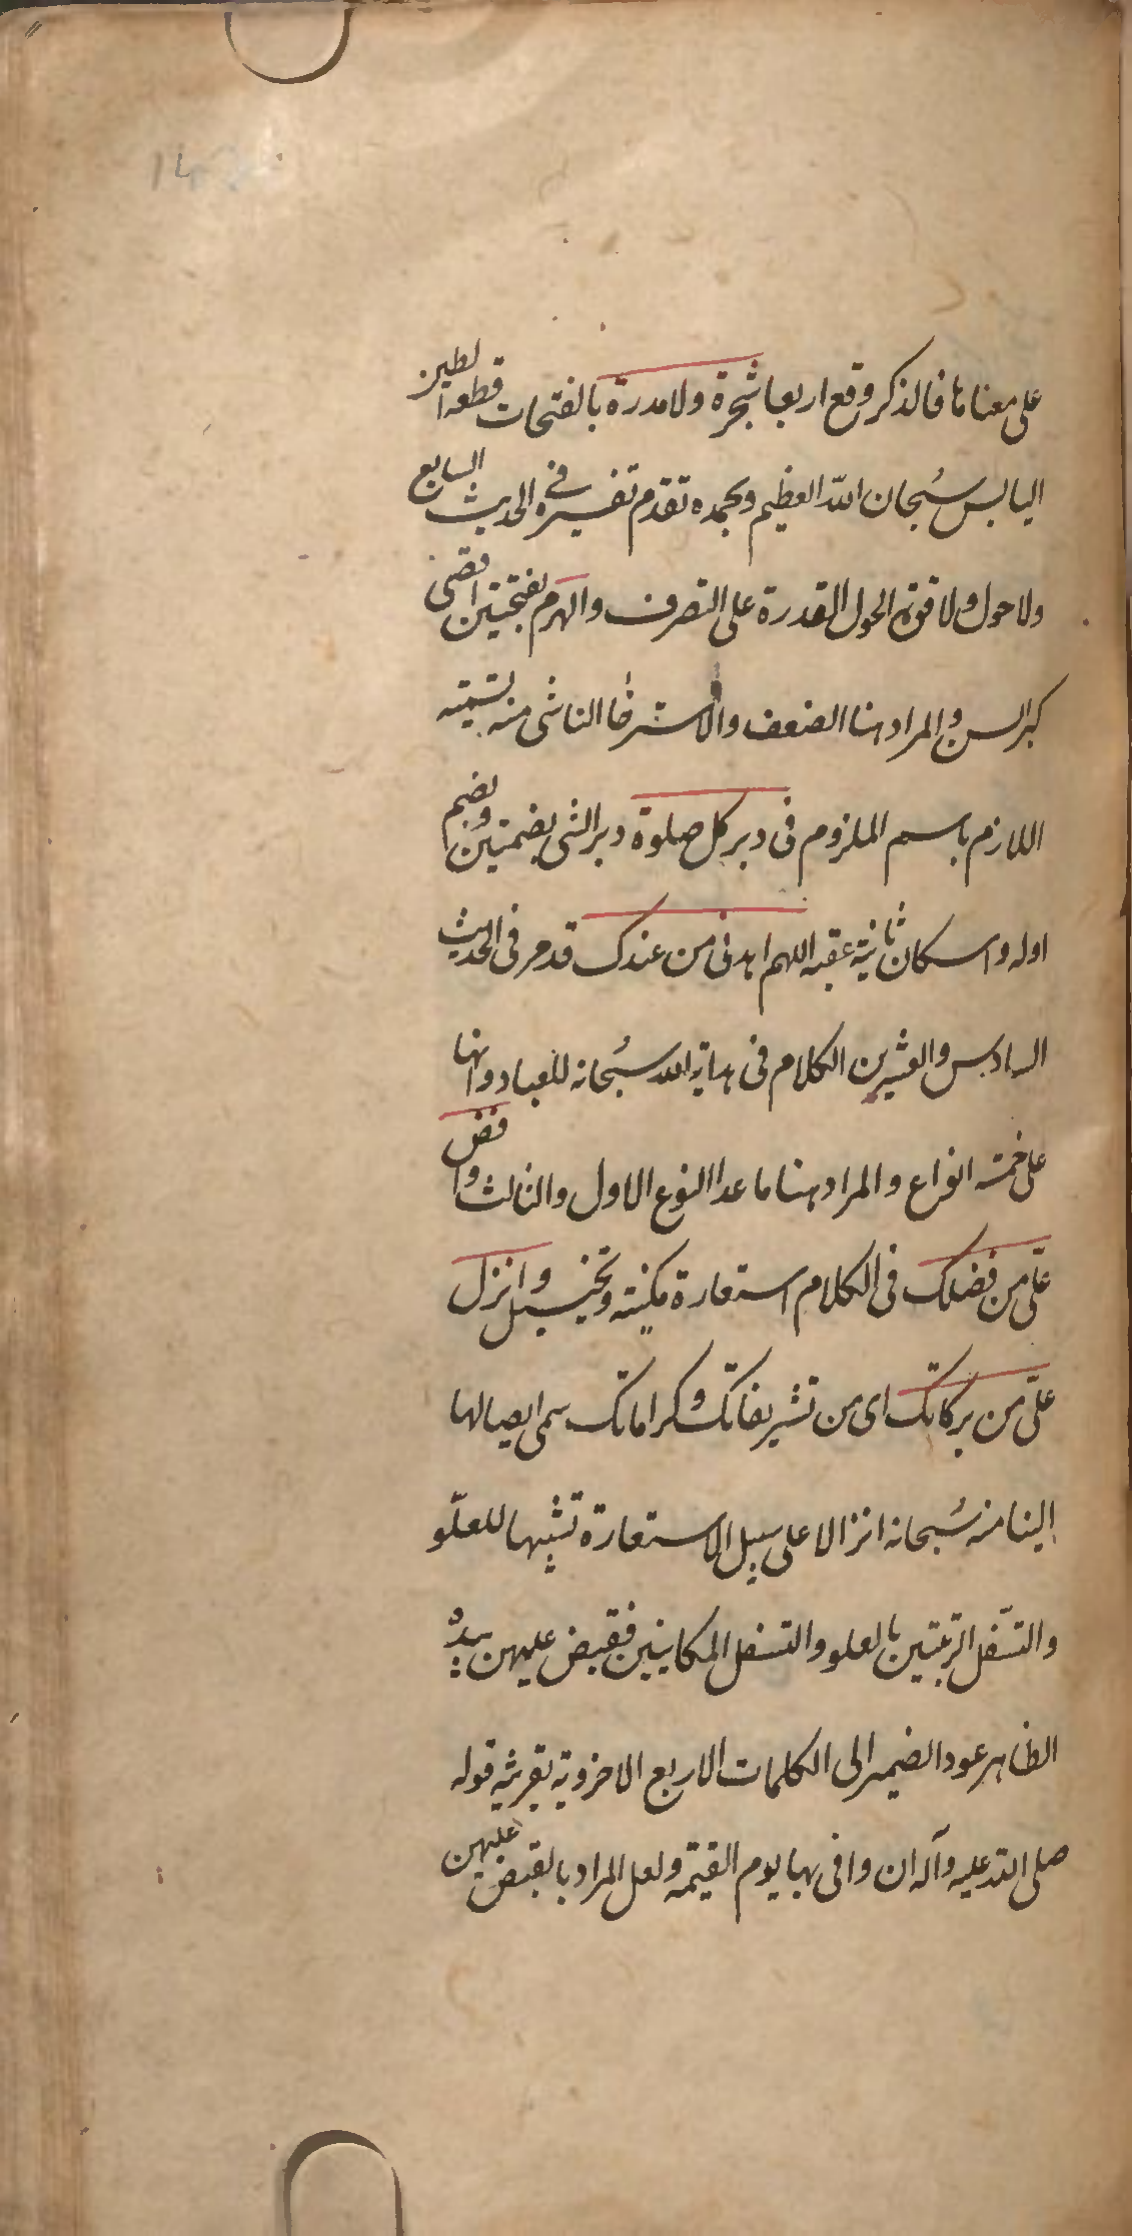 على معناها فالذكر وقع اربعا شجرة ولا مدرة بالفتحات قطعة الطين
اليابس سُبحان الله العظيم وبحمده تقدم تفسيره في الحديث السابع
ولا حول ولا قوة الحول القدرة على التصرف والهرم بفتحتين اقصى
كبر السن والمراد هنا الضعف والاسترخا الناشى منه تسمية
اللازم باسم الملزوم فى دبر كل صلوة دبر الشى بضمتين وبضم
اوله واسكان ثانية عقبه اللهم اهدنى من عندك قد مر فى الحديث
السادس والعشرين الكلام فى هداية الله سُبحانه للعباد وانها
على خمسة انواع والمراد هنا ما عدا النوع الاول والثالث وافض
علىّ من فضلك فى الكلام استعارة مكنية وتخييل وانزل
علىّ من بركاتك اى من تشريفاتك وكراماتك سمى ايصالها
الينا منه سُبحانه انزالا على سبيل الاستعارة تشبيها للعلوّ
والتسّفل الرتبتين بالعلو والتسفل المكانيين فقبض عليهن بيدُه
الظاهر عود الضمير الى الكلمات الاربع الاخروية بقرينة قوله
صلى الله عليه وآله ان وافى بها يوم القيمة ولعل المراد بالقبض عليهن